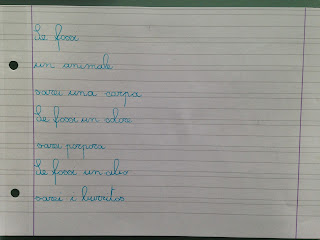 Se fossi
un animale
sarei una carpa
Se fossi un odore
sarei porpora
Se fossi un cibo
sarei i burritos